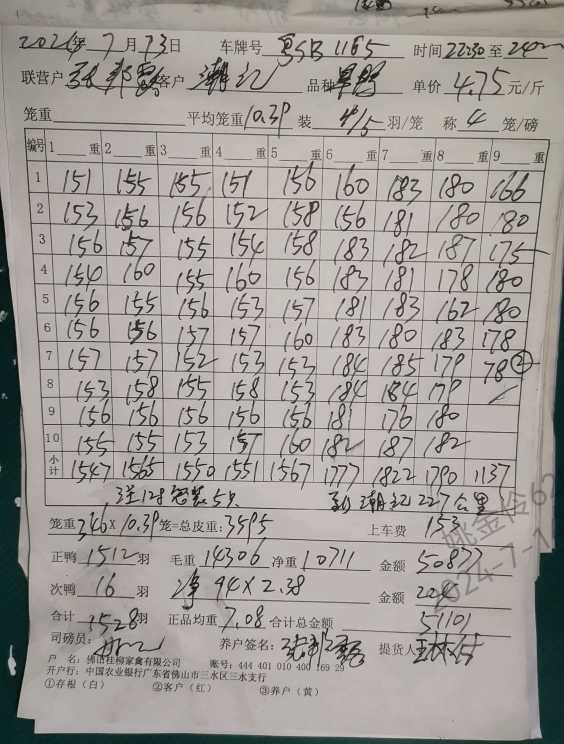 2024年7月13日 车牌号 粤SB1165 时间22230至240
联营户 客户 潮汕 品种 单价4.75元/斤
笼重 平均笼重10.39装4/15羽/笼 称4笼/磅
编号 1 重 2 重 3 重 4 重 5 重 6 重 7 重 8 重 9 重
1 151 155 155 151 156 160 183 180 166
2 153 156 156 152 158 156 181 180 180
3 156 157 155 154 158 183 182 187 175
4 154 160 155 160 156 183 181 178 180
5 156 155 156 153 157 181 183 162 180
6 156 156 157 157 160 183 180 183 178
7 157 157 152 153 153 184 185 179 78②
8 153 158 155 158 153 184 184 179
9 156 156 156 156 156 181 176 180
10 155 155 153 157 160 182 187 182
小计 1547 1565 1550 1551 1567 1777 1822 1790 1137
送12 5只 到潮汕227公里
笼重346×10.39笼=总皮重:3595 上车费 153
正鸭1512羽 毛重14306净重10711 金额50877
次鸭16羽 净94×2.38 金额224
合计1528羽 正品均重7.08合计总金额51101
司磅员: 养户签名: 提货人
户 名:佛山桂柳家禽有限公司 账号:444 401 010 400 169 29
开户行:中国农业银行广东省佛山市三水区三水支行
①存根(白) ②客户(红) ③养户(黄)